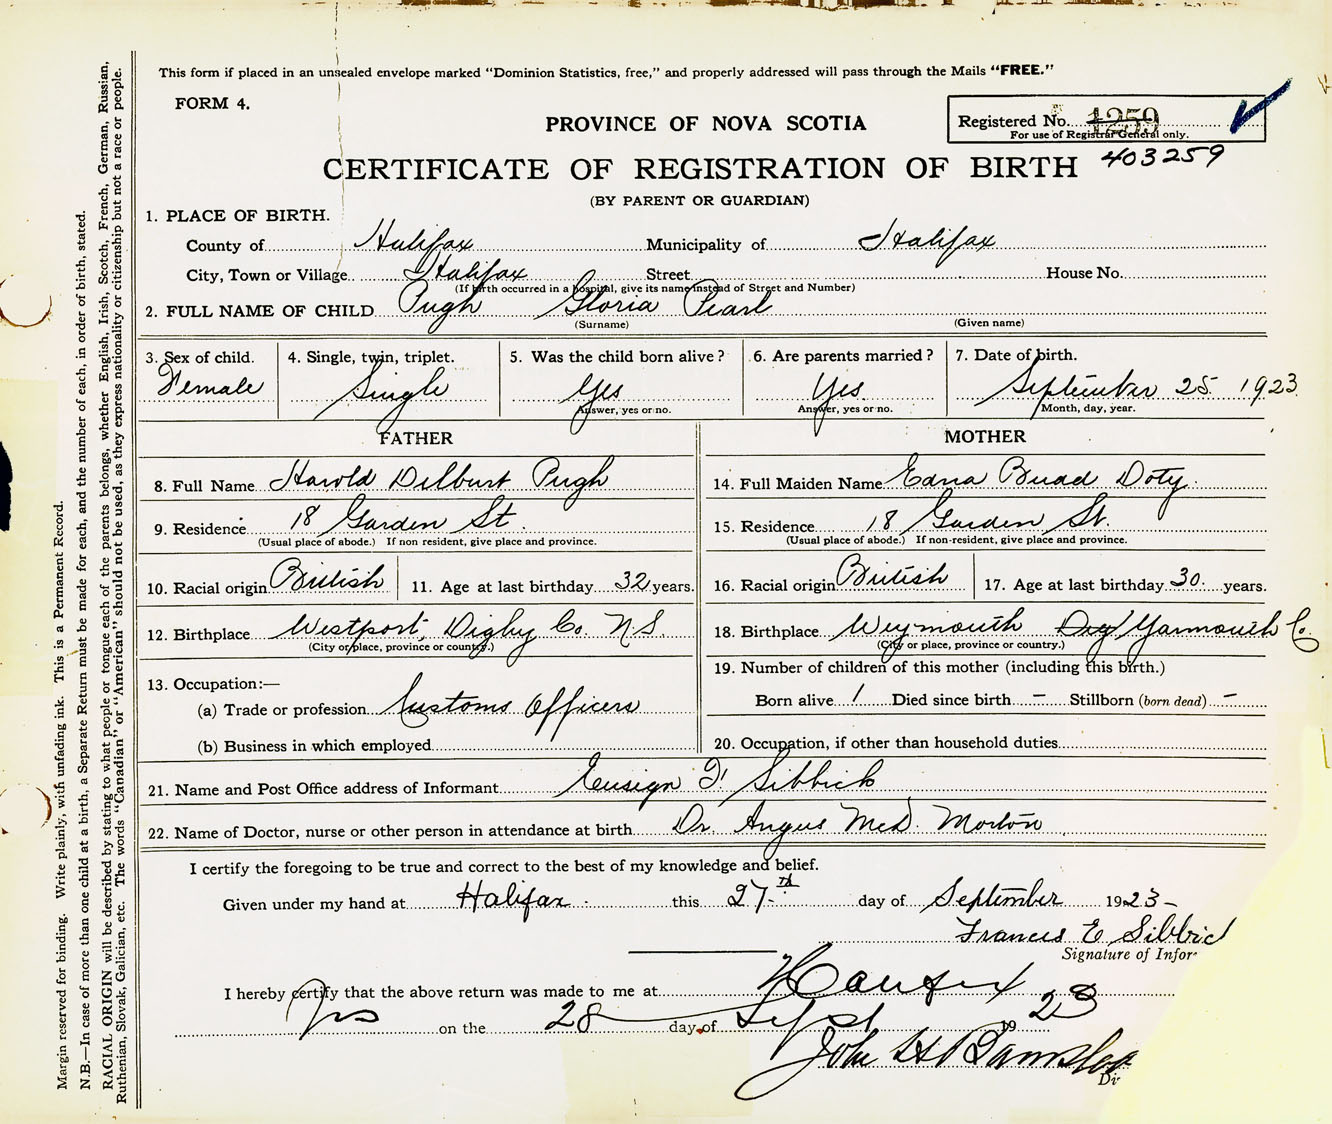 This form if placed in an unsealed envelope marked "Dominion Statistics, free," and properly addressed will pass through the Mails "FREE."
FORM 4.
Registered No. 1259
For use of Registrar General only.
PROVINCE OF NOVA SCOTIA
CERTIFICATE OF REGISTRATION OF BIRTH 403259
(BY PARENT OR GUARDIAN)
1. PLACE OF BIRTH.
County of Halifax Municipality of Halifax
City, Town or Village Halifax Street House No.
(If birth occurred in a hospital, give its name instead of Street and Number)
2. FULL NAME OF CHILD Pugh Gloria Pearl
(Surname) (Given name)
3. Sex of child. 4. Single, twin, triplet. 5. Was the child born alive? 6. Are parents married? 7. Date of birth.
Female Single Yes Yes September 25 1923
Answer, yes or no. Answer, yes or no. Month, day, year.
FATHER MOTHER
8. Full Name Harold Dilburt Pugh 14. Full Maiden Name Edna Budd Doty.
9. Residence 18 Garden St. 15. Residence 18 Garden St.
(Usual place of abode.) If non resident, give place and province. (Usual place of abode.) If non-resident, give place and province.
10. Racial origin British 11. Age at last birthday 32 years. 16. Racial origin British 17. Age at last birthday 30 years.
12. Birthplace Westport, Digby Co. N.S. 18. Birthplace Weymouth Dig Yarmouth Co.
(City or place, province or country.) (City or place, province or country.)
13. Occupation:— 19. Number of children of this mother (including this birth.)
(a) Trade or profession Customs Officers Born alive 1 Died since birth – Stillborn (born dead) –
(b) Business in which employed 20. Occupation, if other than household duties
21. Name and Post Office address of Informant Ensign F. Sibbick
22. Name of Doctor, nurse or other person in attendance at birth Dr. Angus McD. Morton
I certify the foregoing to be true and correct to the best of my knowledge and belief.
Given under my hand at Halifax this 27th day of September 1923-
Frances E Sibbic
Signature of Infor
I hereby certify that the above return was made to me at Halifax
on the 28 day of Sept 19 23
John
Margin reserved for binding. Write plainly, with unfading ink. This is a Permanent Record.
N.B.—In case of more than one child at a birth, a Separate Return must be made for each, and the number of each, in order of birth, stated.
RACIAL ORIGIN will be described by stating to what people or tongue each of the parents belongs, whether English, Irish, Scotch, French, German, Russian,
Ruthenian, Slovak, Galician, etc. The words "Canadian" or "American" should not be used, as they express nationality or citizenship but not a race or people.